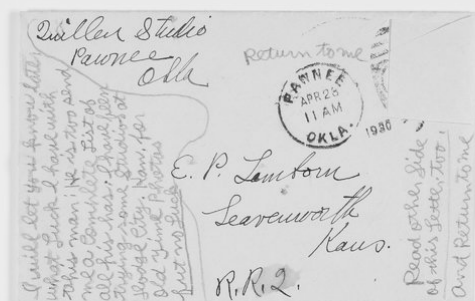 Quillen Studio
Pawnee
Okla
Return to me
PAWNEE
APR 28
11 AM
OKLA.
1930
E. P. Lamborn
Leavenworth
Kans.
R.R.2.
I will let you know later
what Luck I have with
this man: He is too send
me a Complete List of
all he has: I have been
trying some Studios at
Dodge City, Kan, for
Old time Photos
but no Luck
Read other Side
of this Letter too,
and Return to me